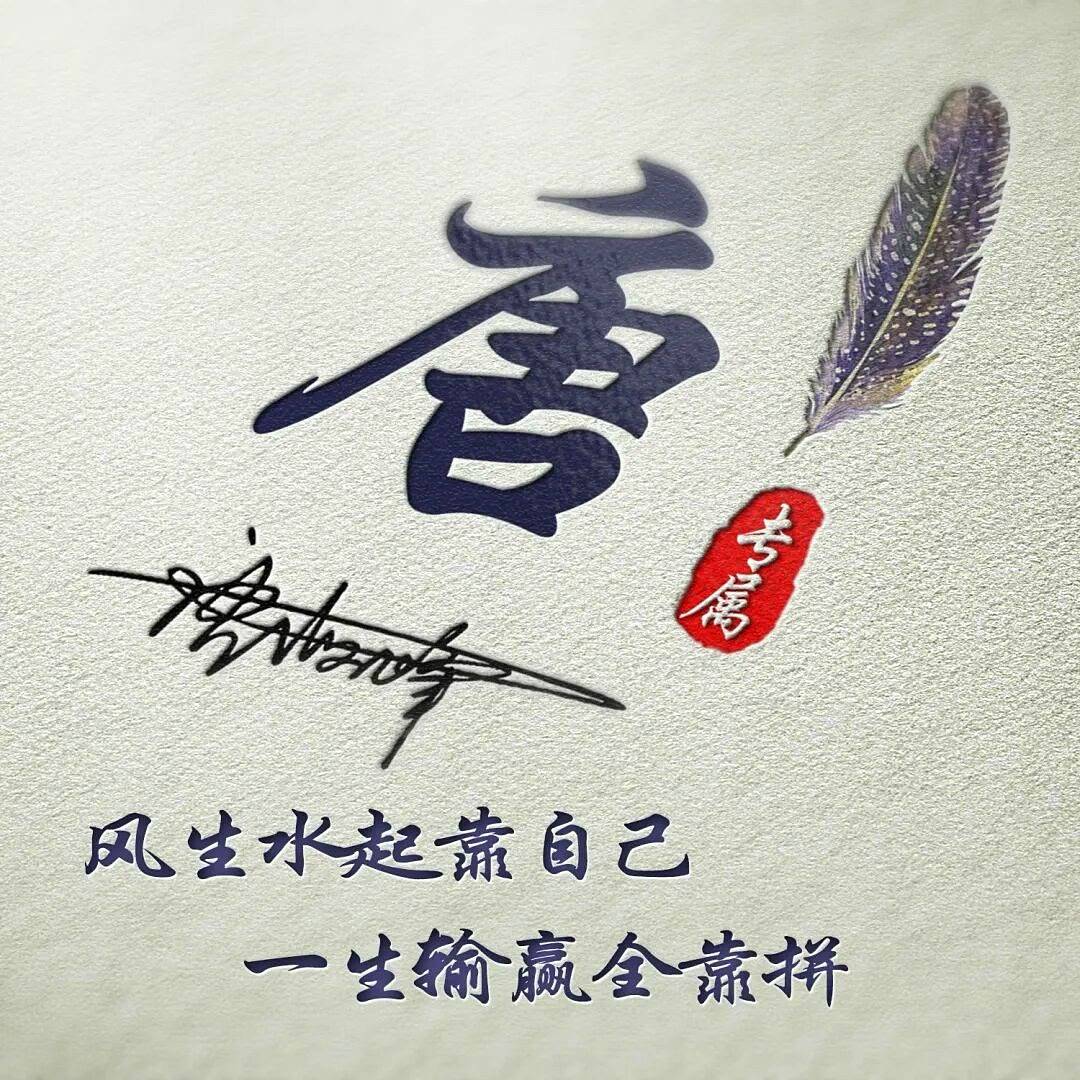 唐
专属
风生水起靠自己
一生输赢全靠拼